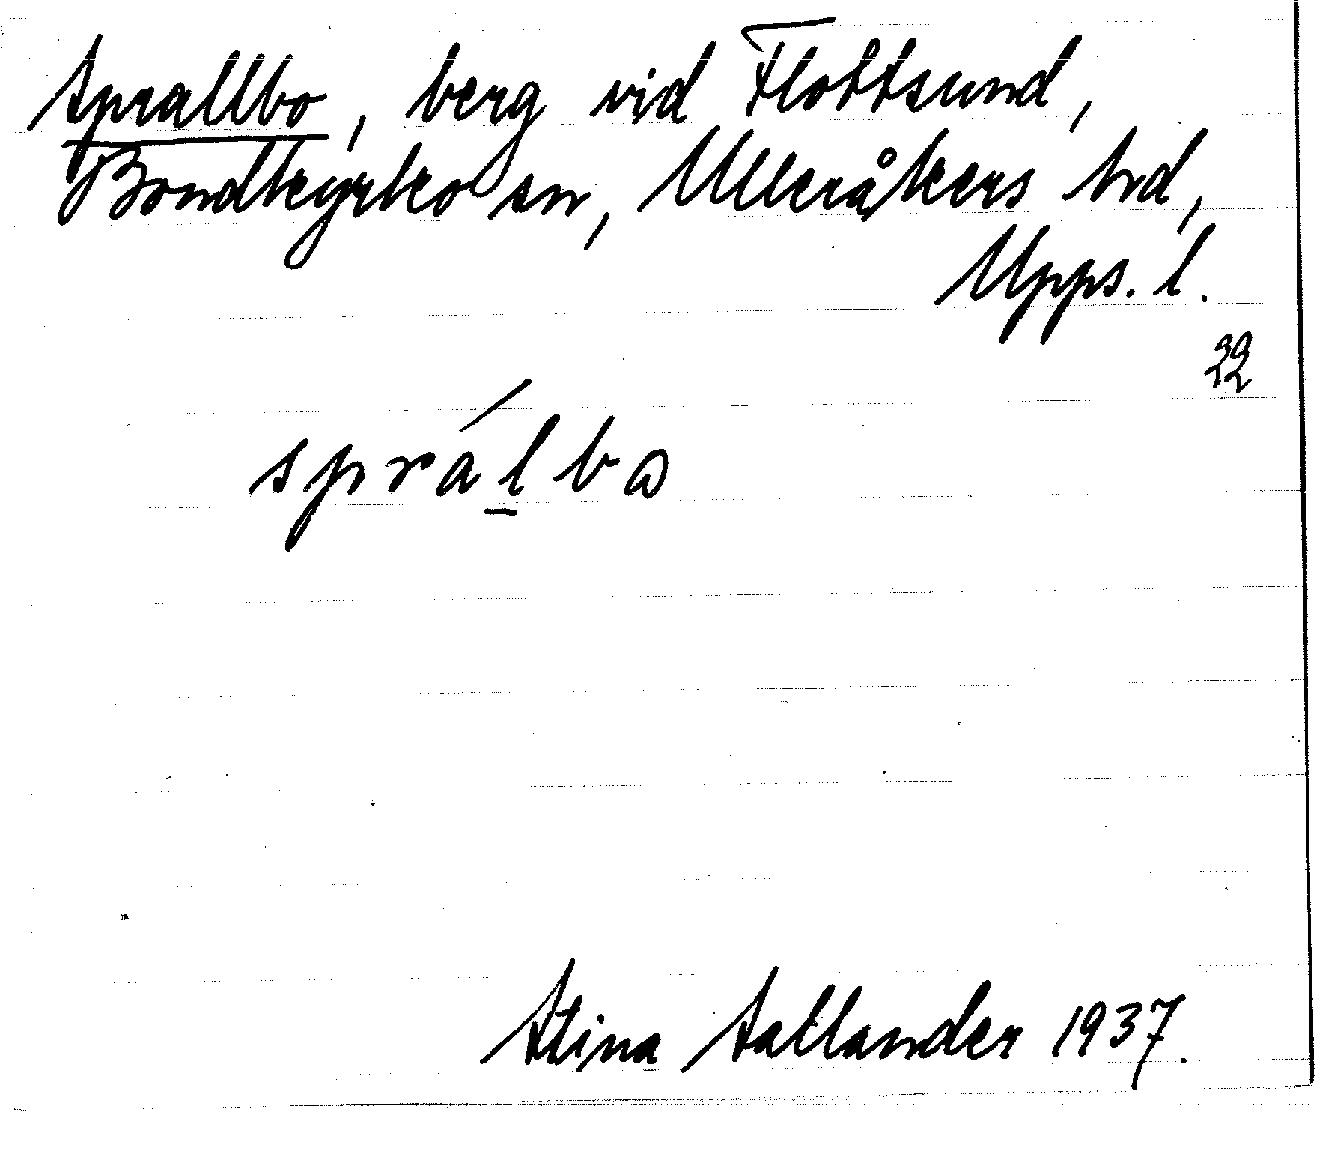 Sprallbo, berg vid Flottsund,
Bondkyrko sn, Ulleråkers hd,
Upps. l.
32
språlbω
Stina Sallander 1937.